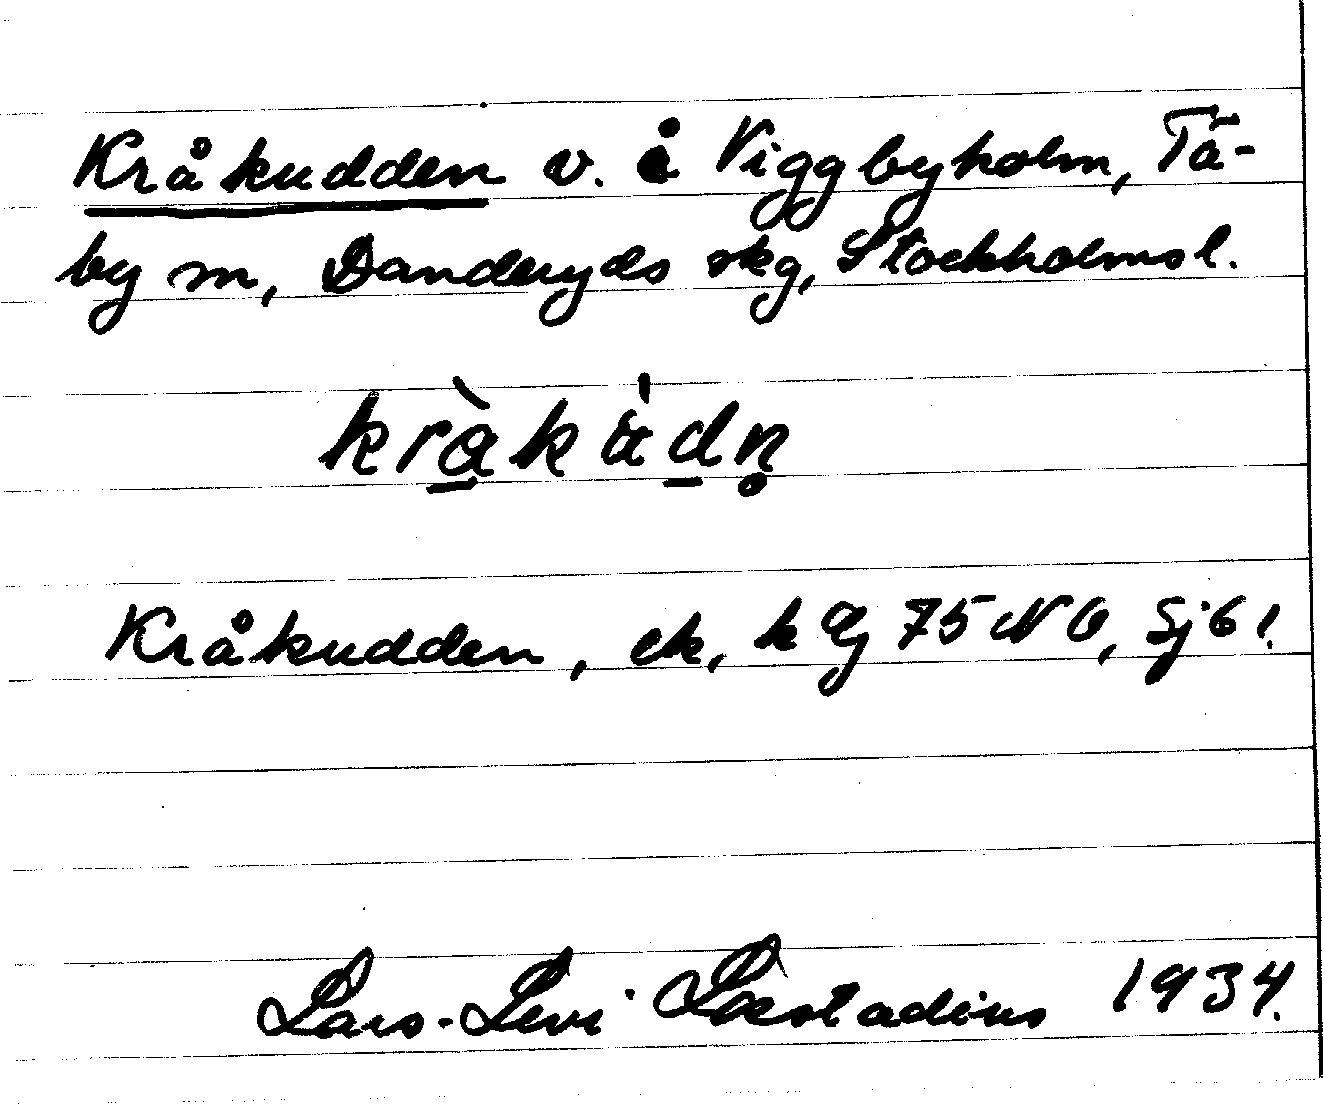 Kråkudden v. å Viggbyholm, Tä-
by sn, Danderyds skg, Stockholms l.
kråkudn̥
Kråkudden, ek, k 75 NO, Sj 61.
Lars-Levi Læstadius 1934.